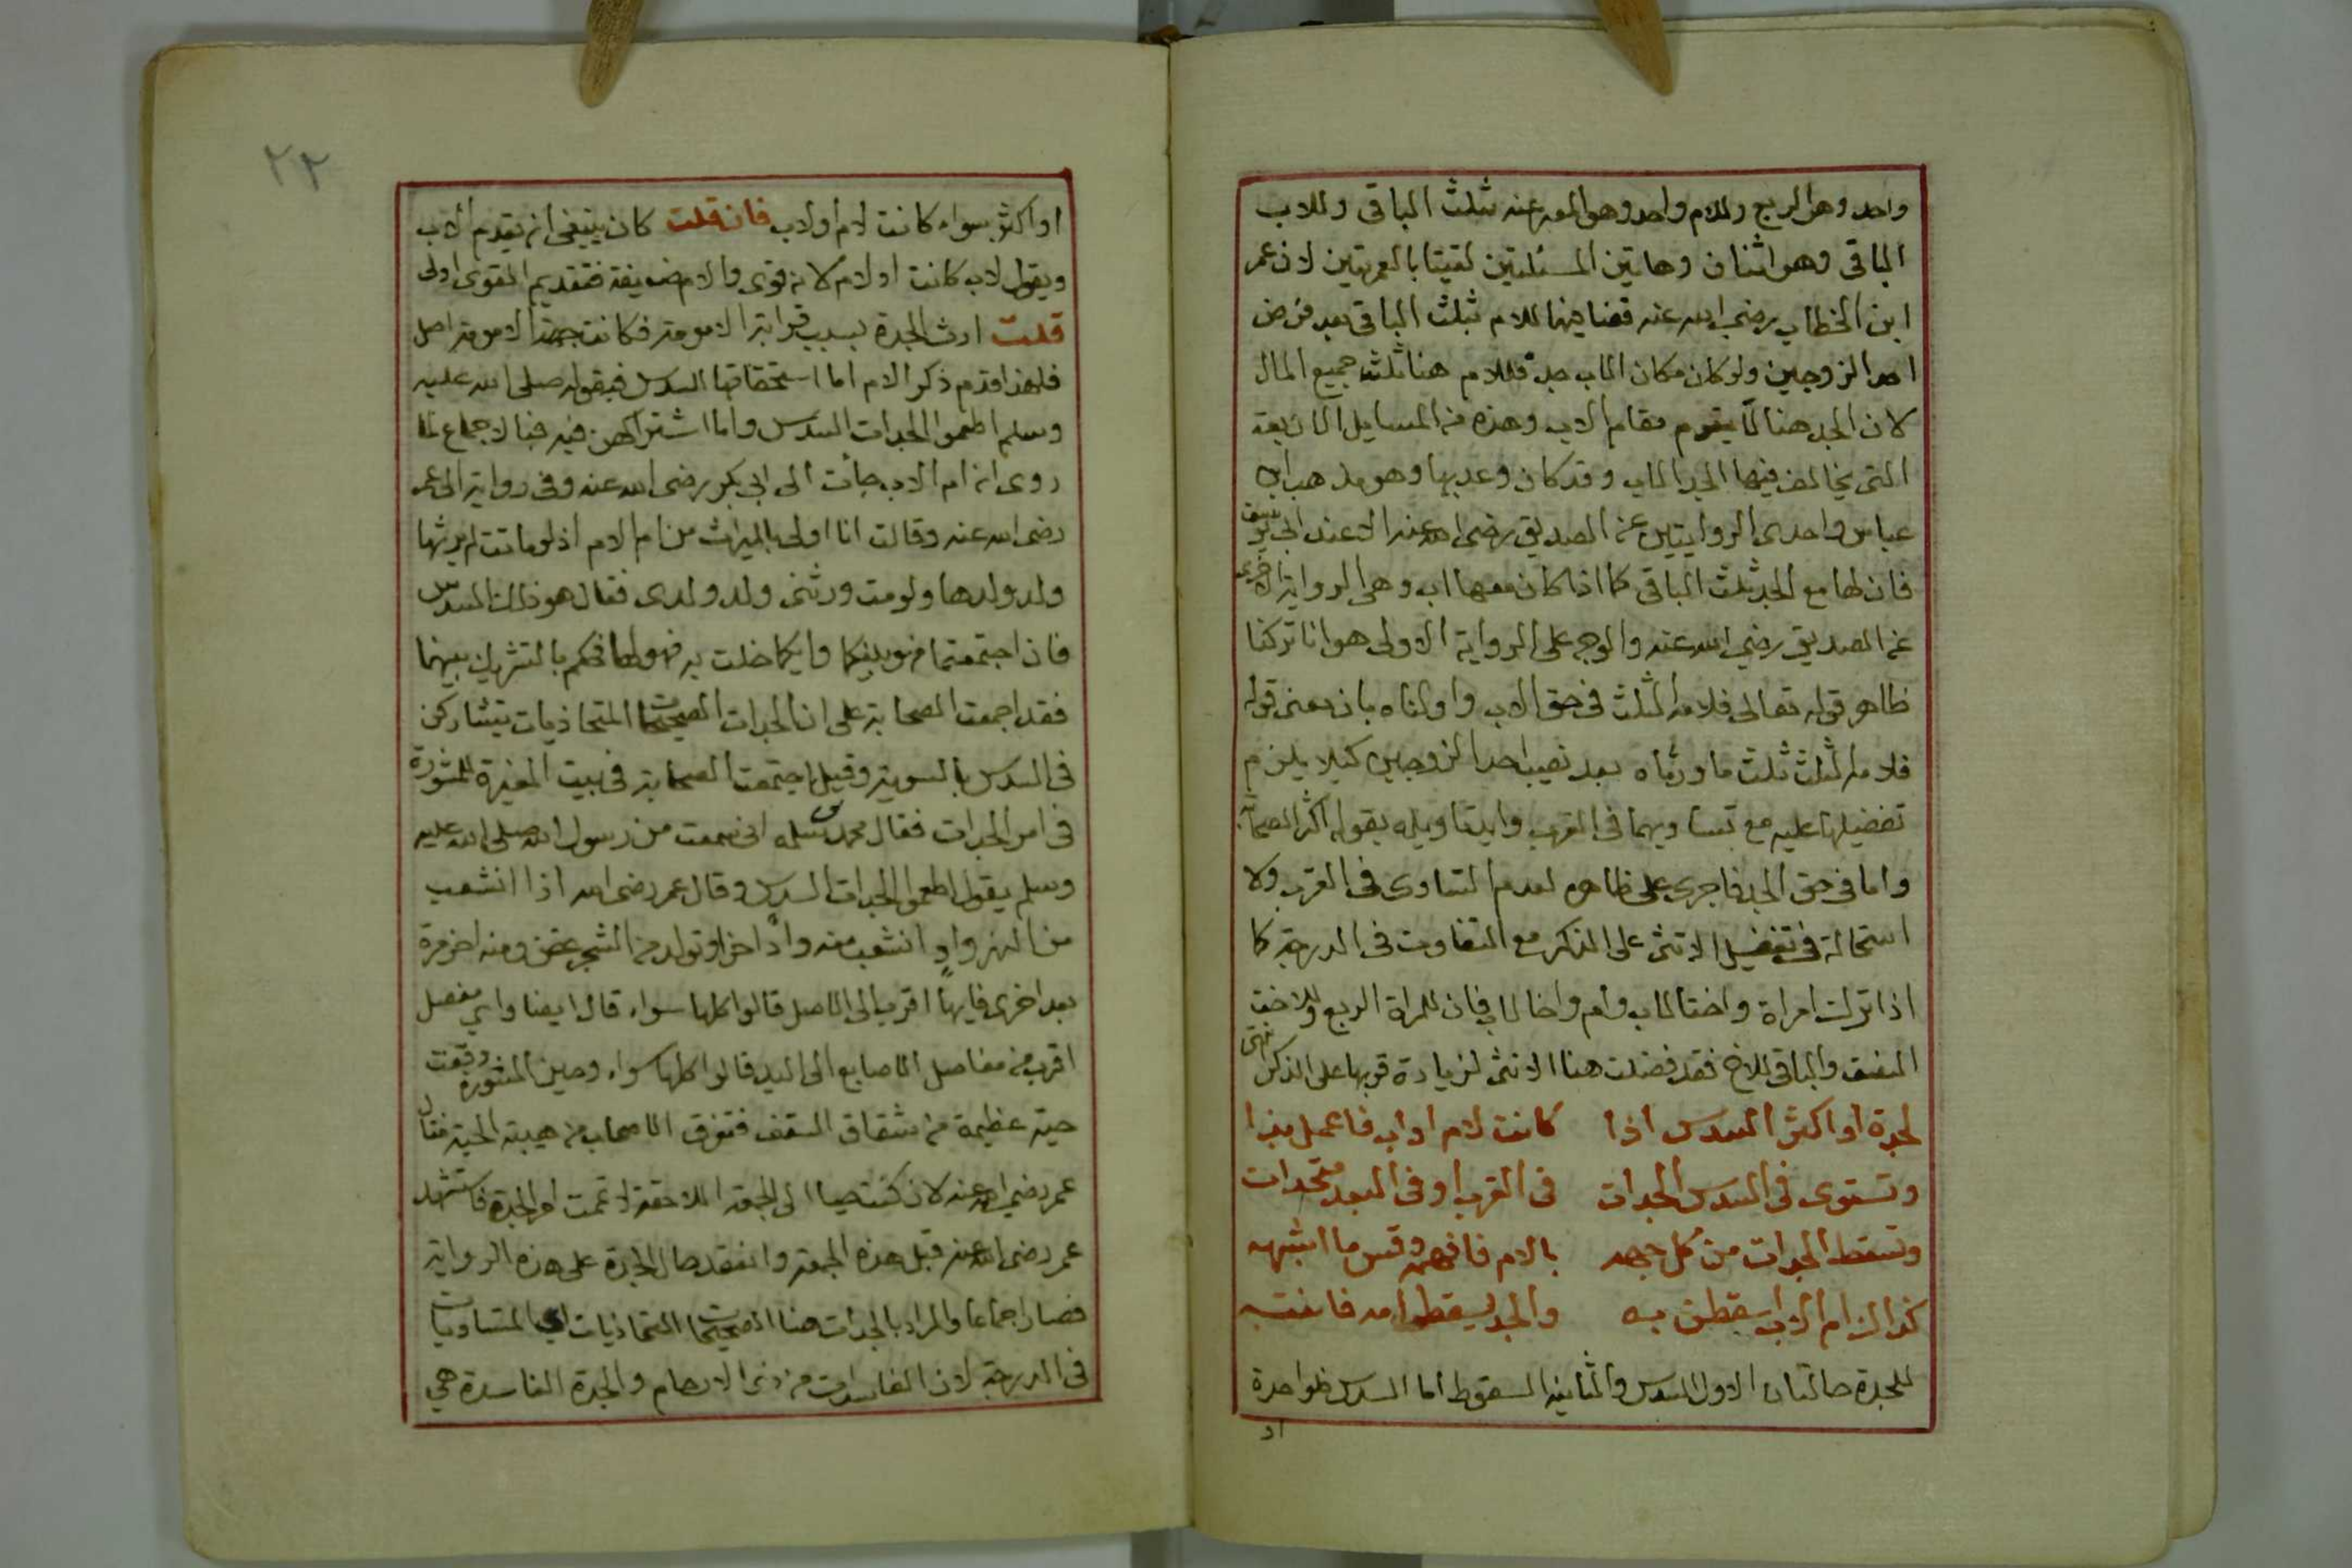 واحد وهو الربع وللام واحد وهو المعبر عنه ثلث الباقى وللاب
الباقى وهو اثنان وهاتين المسئلتين لقبتا بالعمريتين لان عمر
ابن الخطاب رضي الله عنه قضا فيهما للام بثلث الباقى بعد فرض
احد الزوجين ولو كان مكان الاب جد فللام هنا ثلث جميع المال
لان الجد هنا لا يقوم مقام الاب وهذه من المسايل الاربعة
التى يخالف فيها الجد الاب وقد كان وعد بها وهو مذهب ابن
عباس واحدى الروايتين عن الصديق رضى الله عنه الا عند ابى يوسف
فان لها مع الجد ثلث الباقى كما اذا كان معها اب وهى الرواية الاخرى
عن الصديق رضي الله عنه والوجه على الرواية الاولى هو انا تركنا
ظاهر قوله تعالى فلامه الثلث فى حق الاب واولناه بان معنى قوله
فلامه الثلث ثلث ما ورثاه بعد نصيب احد الزوجين كيلا يلزم
تفضيلها عليه مع تساويهما فى القرب وايدنا تاويله بقول اكثر الصحابة
واما فى حق الجد فاجرى على ظاهره لعدم التساوى فى القرب ولا
استحالة فى تفضيل الانثى على الذكر مع التفاوت فى الدرجة كما
اذا ترك امراة واختا لاب وام واخا لاب فان للمراة الربع وللاخت
النصف والباقى للاخ فقد فضلت هنا الانثى لزيادة قربها على الذكر انتهى
لجدة او اكثر السدس اذا كانت لام او اب فاعمل بذا
وتستوى فى السدس الجدات فى القرب او فى البعد متحدات
وتسقط الجدات من كل جهه بالام فافهمه وقس ما اشبهه
كذا لزام الاب اسقطن به والجد يسقط امه فانتبه
للجدة حالتان الاول السدس والثانيه السقوط اما السدس فلواحدة
او
٢٢
او اكثر سواء كانت لام او لاب فان قلت كان ينبغى ان يقدم الاب
ويقول لاب كانت او لام لانه قوى والام ضعيفة فتقديم القوى اولى
قلت ارث الجدة بسبب قرابة الامومة فكانت جهة الامومة اصل
فلهذا قدم ذكر الام اما استحقاقها السدس فبقوله صلى الله عليه
وسلم اطعموا الجدات السدس واما اشتراكهن فيه فبالاجماع لما
روى ان ام الاب جأت الى ابى بكر رضى الله عنه وفى رواية الى عمر
رضى الله عنه وقالت انا اولى بالميراث من ام الام اذ لو ماتت لم يرثها
ولد ولدها ولو مت ورثنى ولد ولدى فقال هو ذلك السدس
فان اجتمعتما فهو بينكما وايكما خلت به فهو لها فحكم بالتشريك بينهما
فقد اجمعت الصحابة على ان الجدات الصحيحات المتحاذيات يتشاركن
فى السدس بالسوية وقيل اجتمعت الصحابة فى بيت المغيرة للمشورة
فى امر الجدات فقال محمد بن سلمه انى سمعت من رسول الله صلى الله عليه
وسلم يقول اطعموا الجدات السدس وقال عمر رضى الله اذا انشعب
من النهر وادٍ انشعب منه وادٍ اخر او تولد من الشجر غصن ومنه اخر مرة
بعد اخرى فايها اقرب الى الاصل قالوا كلها سواء قال ايضا واي مفصل
اقرب من مفاصل الاصابع الى اليد قالوا كلها سواء وحين المشورة وقعت
حية عظيمة من شقاق السقف فتفرق الاصحاب من هيبة الحية فقال
عمر رضي الله عنه لان كنت حيا الى الجمعة اللاحقة لاتممت امر الجدة فاستشهد
عمر رضى الله عنه قبل هذه الجمعة وانعقد حال الجدة على هذه الرواية
فصار اجماعا والمراد بالجدات هنا الصحيحات المتحاذيات اى المتساويات
فى الدرجة لان الفاسدات من ذوى الارحام والجدة الفاسدة هي